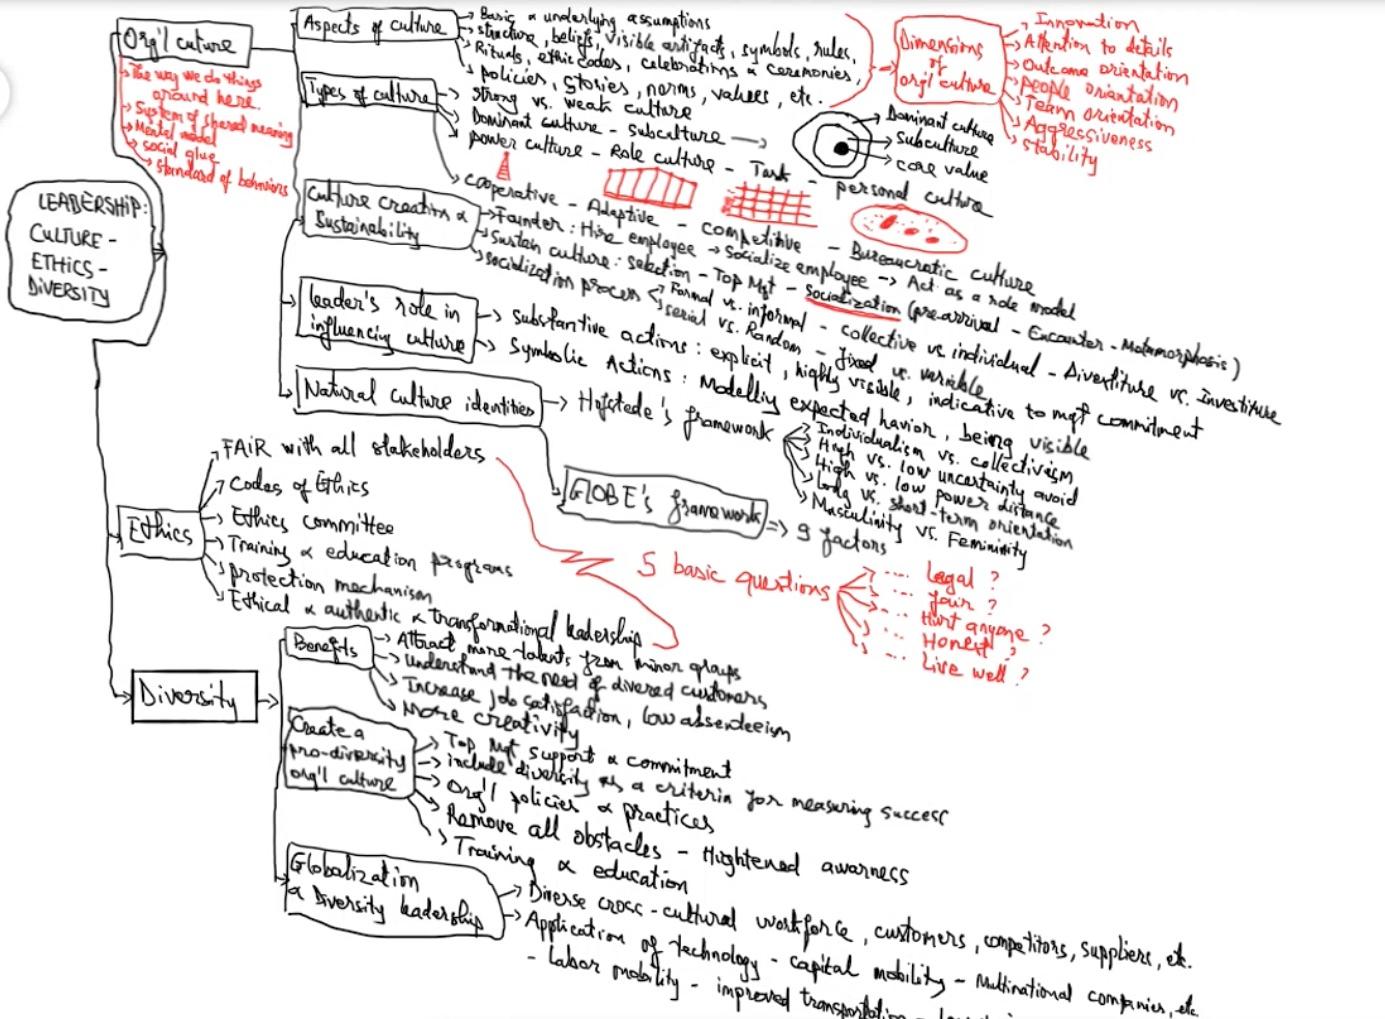 LEADERSHIP:
CULTURE -
ETHICS -
DIVERSITY
Org'l cuture
The way we do things
around here.
System of shared meaning
Mental model
social glue
standard of behaviors
Aspects of culture
Basic & underlying assumptions
structure, beliefs, visible artifacts, symbols, rules,
Rituals, ethic codes, celebrations & ceremonies,
policies, stories, norms, values, etc.
Dimensions
of
org'l culture
Innovation
Attention to details
Outcome orientation
people orientation
Team orientation
Aggressiveness
stability
Types of culture
strong vs. weak culture
Dominant culture - subculture
Dominant culture
Subculture
core value
power culture - Role culture - Task - personal culture
cooperative - Adaptive - competitive - Bureaucratic culture
Culture creation &
Sustainability
Founder: Hire employee → Socialize employee → Act as a role model
Sustain culture: selection - Top Mgt - Socialization (pre-arrival - Encounter - Metamorphosis)
socialization process
Formal vs. informal - collective vs. individual - Divestiture vs. Investiture
serial vs. Random - fixed vs. variable
leader's role in
influencing culture
Substantive actions: explicit, highly visible, indicative to mgt commitment
Symbolic Actions: Modelling expected havior, being visible
Natural culture identities
Hofstede's framework
Individualism vs. collectivism
High vs. low uncertainty avoid
High vs. low power distance
Long vs. short-term orientation
Masculinity vs. Femininity
GLOBE's framework
=> 9 factors
Ethics
FAIR with all stakeholders
Codes of Ethics
Ethics committee
Training & education programs
protection mechanism
Ethical & authentic & transformational leadership
5 basic questions
.... legal ?
... fair ?
... Hurt anyone ?
... Honest ?
... Live well ?
Diversity
Benefits
Attract more talents from minor groups
understand the need of divered customers
Increase job satisfaction, low absenteeism
More creativity
Create a
pro-diversity
org'l culture
Top Mgt support & commitment
include diversity as a criteria for measuring success
Org'l policies & practices
Remove all obstacles - Hightened awarness
Training & education
Globalization
& Diversity leadership
Diverse cross-cultural workforce, customers, competitors, suppliers, etc.
Application of technology - capital mobility - Multinational companies, etc.
- labor mobility - improved transportation